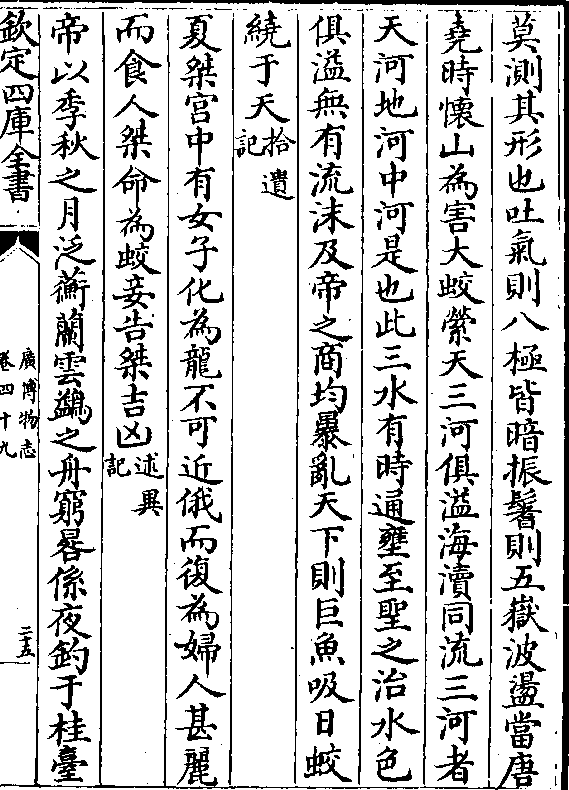 莫測其形也吐氣則八極皆暗振鬐則五嶽波盪當唐
堯時懷山為害大蛟縈天三河俱溢海瀆同流三河者
天河地河中河是也此三水有時通壅至聖之治水色
俱溢無有流沫及帝之商均㬥亂天下則巨魚吸日蛟
繞于天拾遺記
夏桀宫中有女子化為龍不可近俄而復為婦人甚麗
而食人桀命為蛟妾告桀吉凶述異記
帝以季秋之月泛蘅蘭雲鷁之舟窮晷係夜釣于桂臺
欽定四庫全書
廣博物志
卷四十九
二五